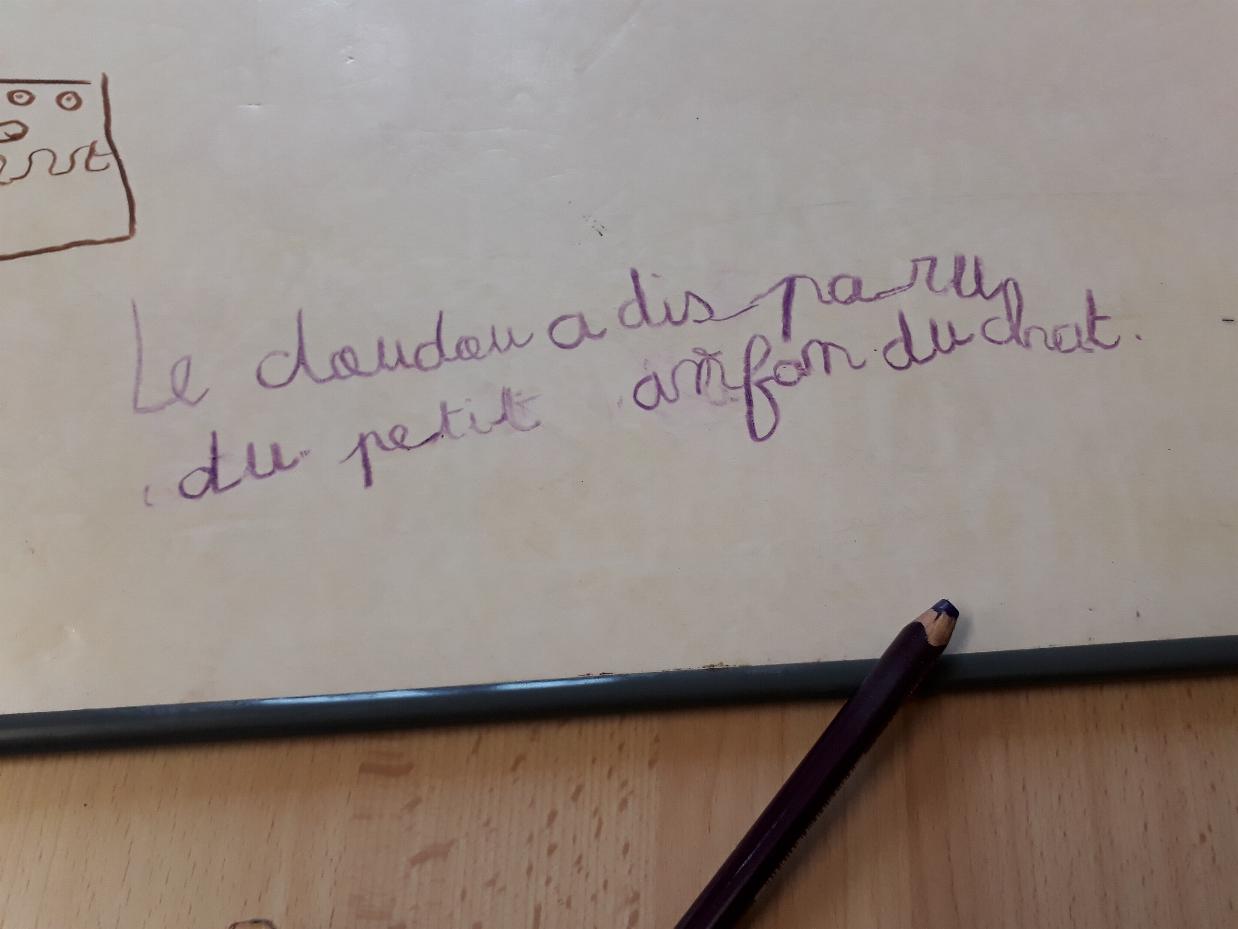 Le doudou a dis paru
du petit anfan du chat.